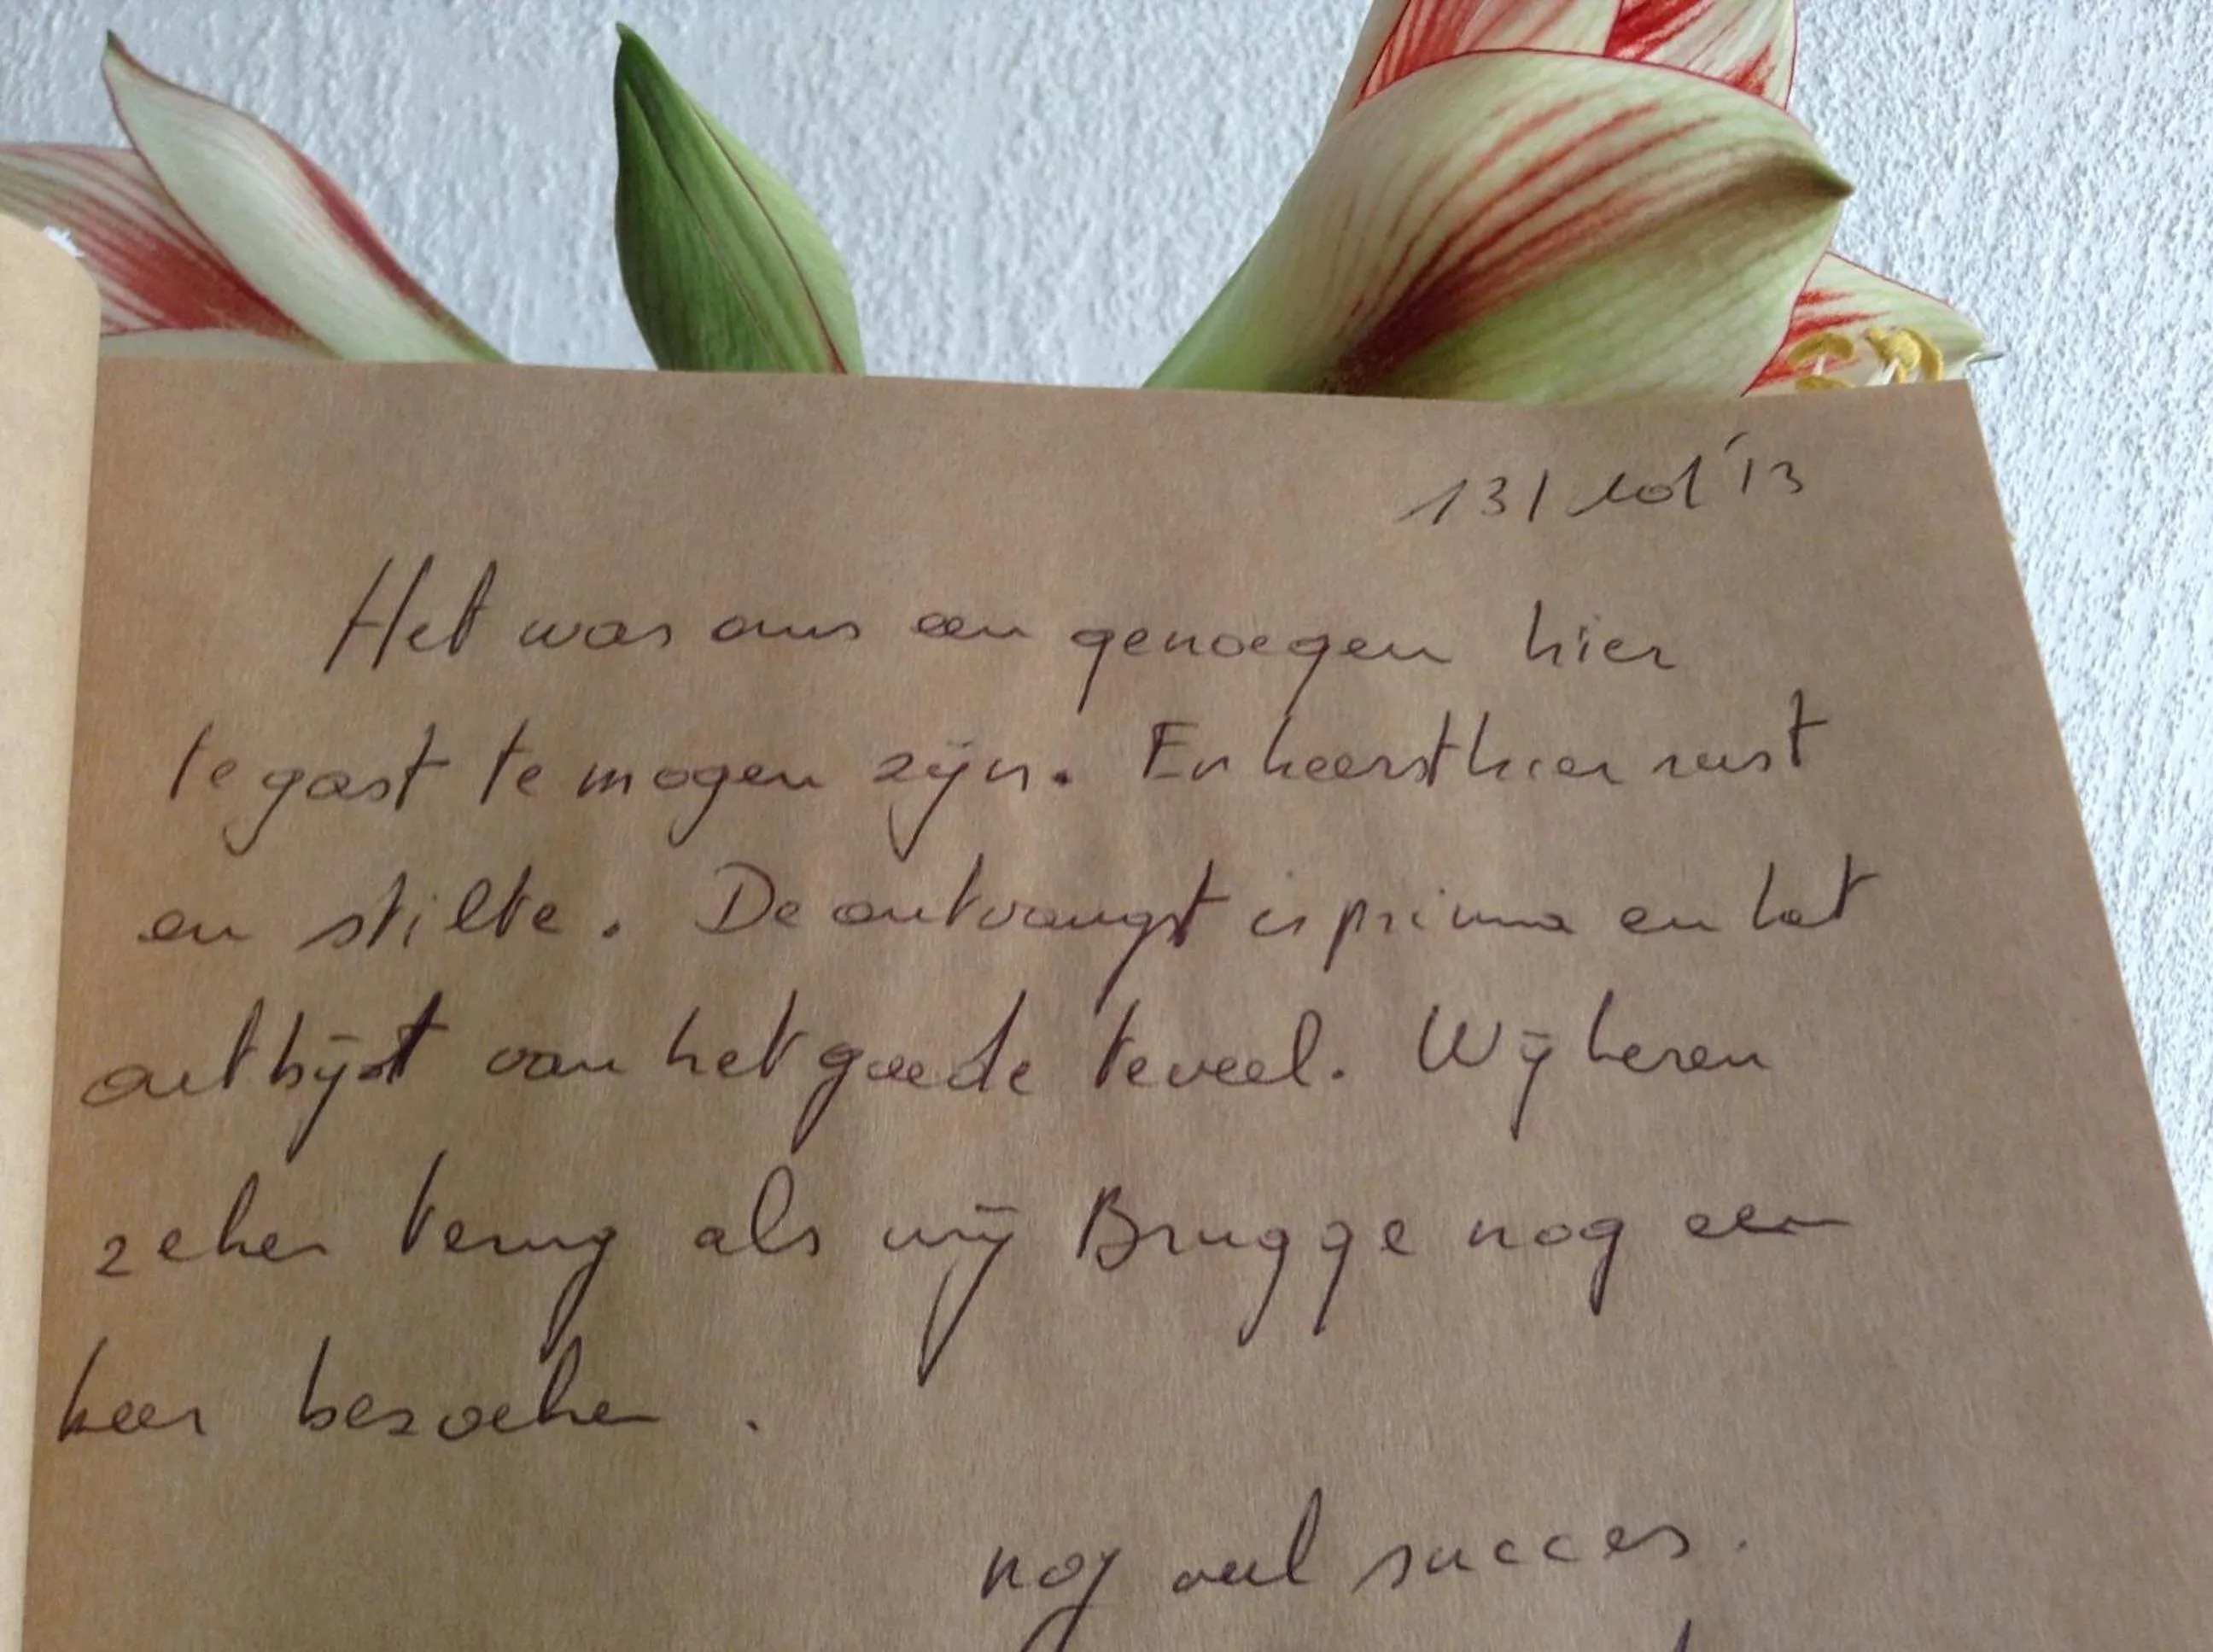 Het was ons een genoegen hier
te gast te mogen zijn. Er heerst hier rust
en stilte. De ontvangst is prima en het
ontbijt van het goede teveel. Wij keren
zeker terug als wij Brugge nog een
keer bezoeken.
nog veel succes.